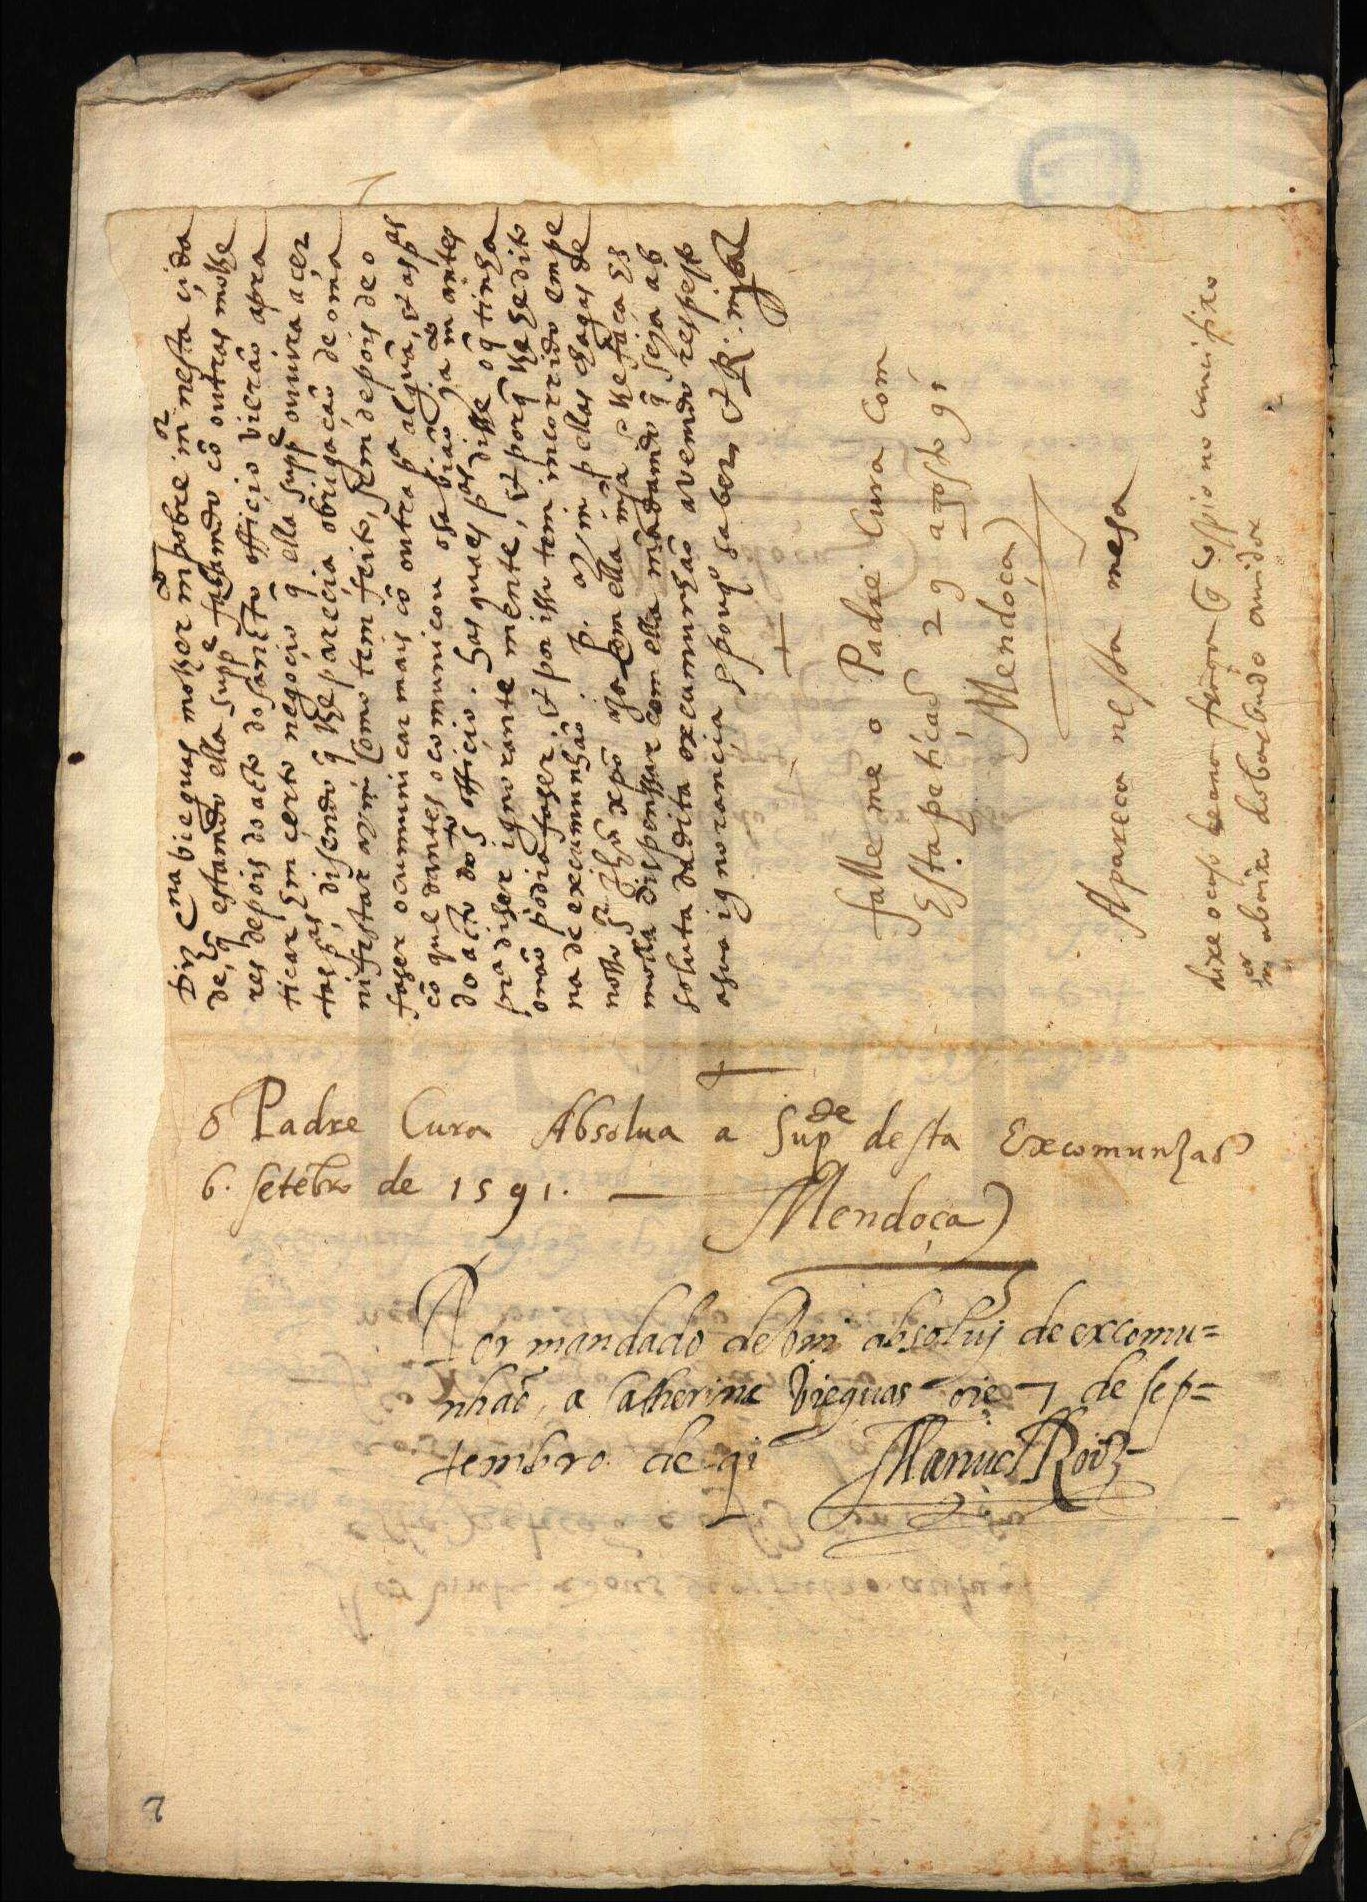 Diz Cna vieguas molhor m pobre mor nesta cida
de, q estamdo ella suppe falamdo cõ outras molhe
res depois do acto do sancto officio vierão apra
ticar em certo negocio q ella suppe ouvira a cer
tas pas, disendo q lhe parecia obrigacão de o ma
nifistar asim como tem feito, sem depois de o
faser o cumunicar mais cõ outra pa algũa, & as pas
cõ que dantes o comunicou o sabião ja mantes
do acto do sto officio. has quaes pas disse o q tinha
pra diser ignorante mente, & porq lhe he dito
o não podia faser, & por isso tem incorrido em pe
na de excumunhão. P. a v. m. pellas chagas de
nosso sor Jhu xpõ aja com ella mia & lhe faça es
molla dispensar com ella mãdamdo q seja ab
soluta da dita excumunhão avemdo respeito
a sua ignorancia & pouqo saber & R. mce
falle me o Padre Cura com
Esta peticaõ 29 agosto 91
Mendoça
Apareca nesta mesa
õ Padre Cura Absolua a Supde desta Excomunhaõ
6. setebro de 1591.
Mendoça
Por mandado de vm absoluj de excomu=
nhaõ, a Catherina Vieguas oie 7 de sep=
tembro de 91 Manuel Roiz